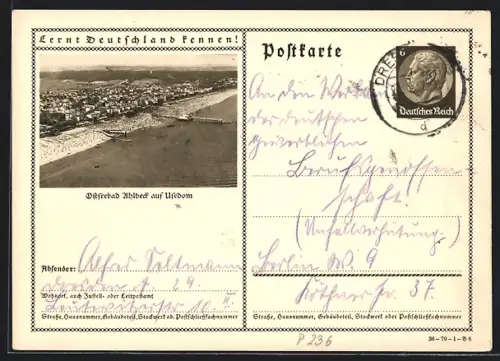 Lernt Deutschland kennen!
Ostseebad Ahlbeck auf Usedom
Absender: Alfred Seltmann
Dresden A. 29
Wohnort, auch Zustell- oder Leitpostamt
10. II
Straße, Hausnummer, Gebäudeteil, Stockwerk od. Postschließfachnummer
Postkarte
6
Deutsches Reich
DRES
d
An den Verband
der deutschen
gewerblichen
Berufsgenossen-
schaft.
(Unfallverhütung.)
Berlin W. 9
Köthner Str. 37.
Straße, Hausnummer, Gebäudeteil, Stockwerk oder Postschließfachnummer
P 236
36-79-1-B6